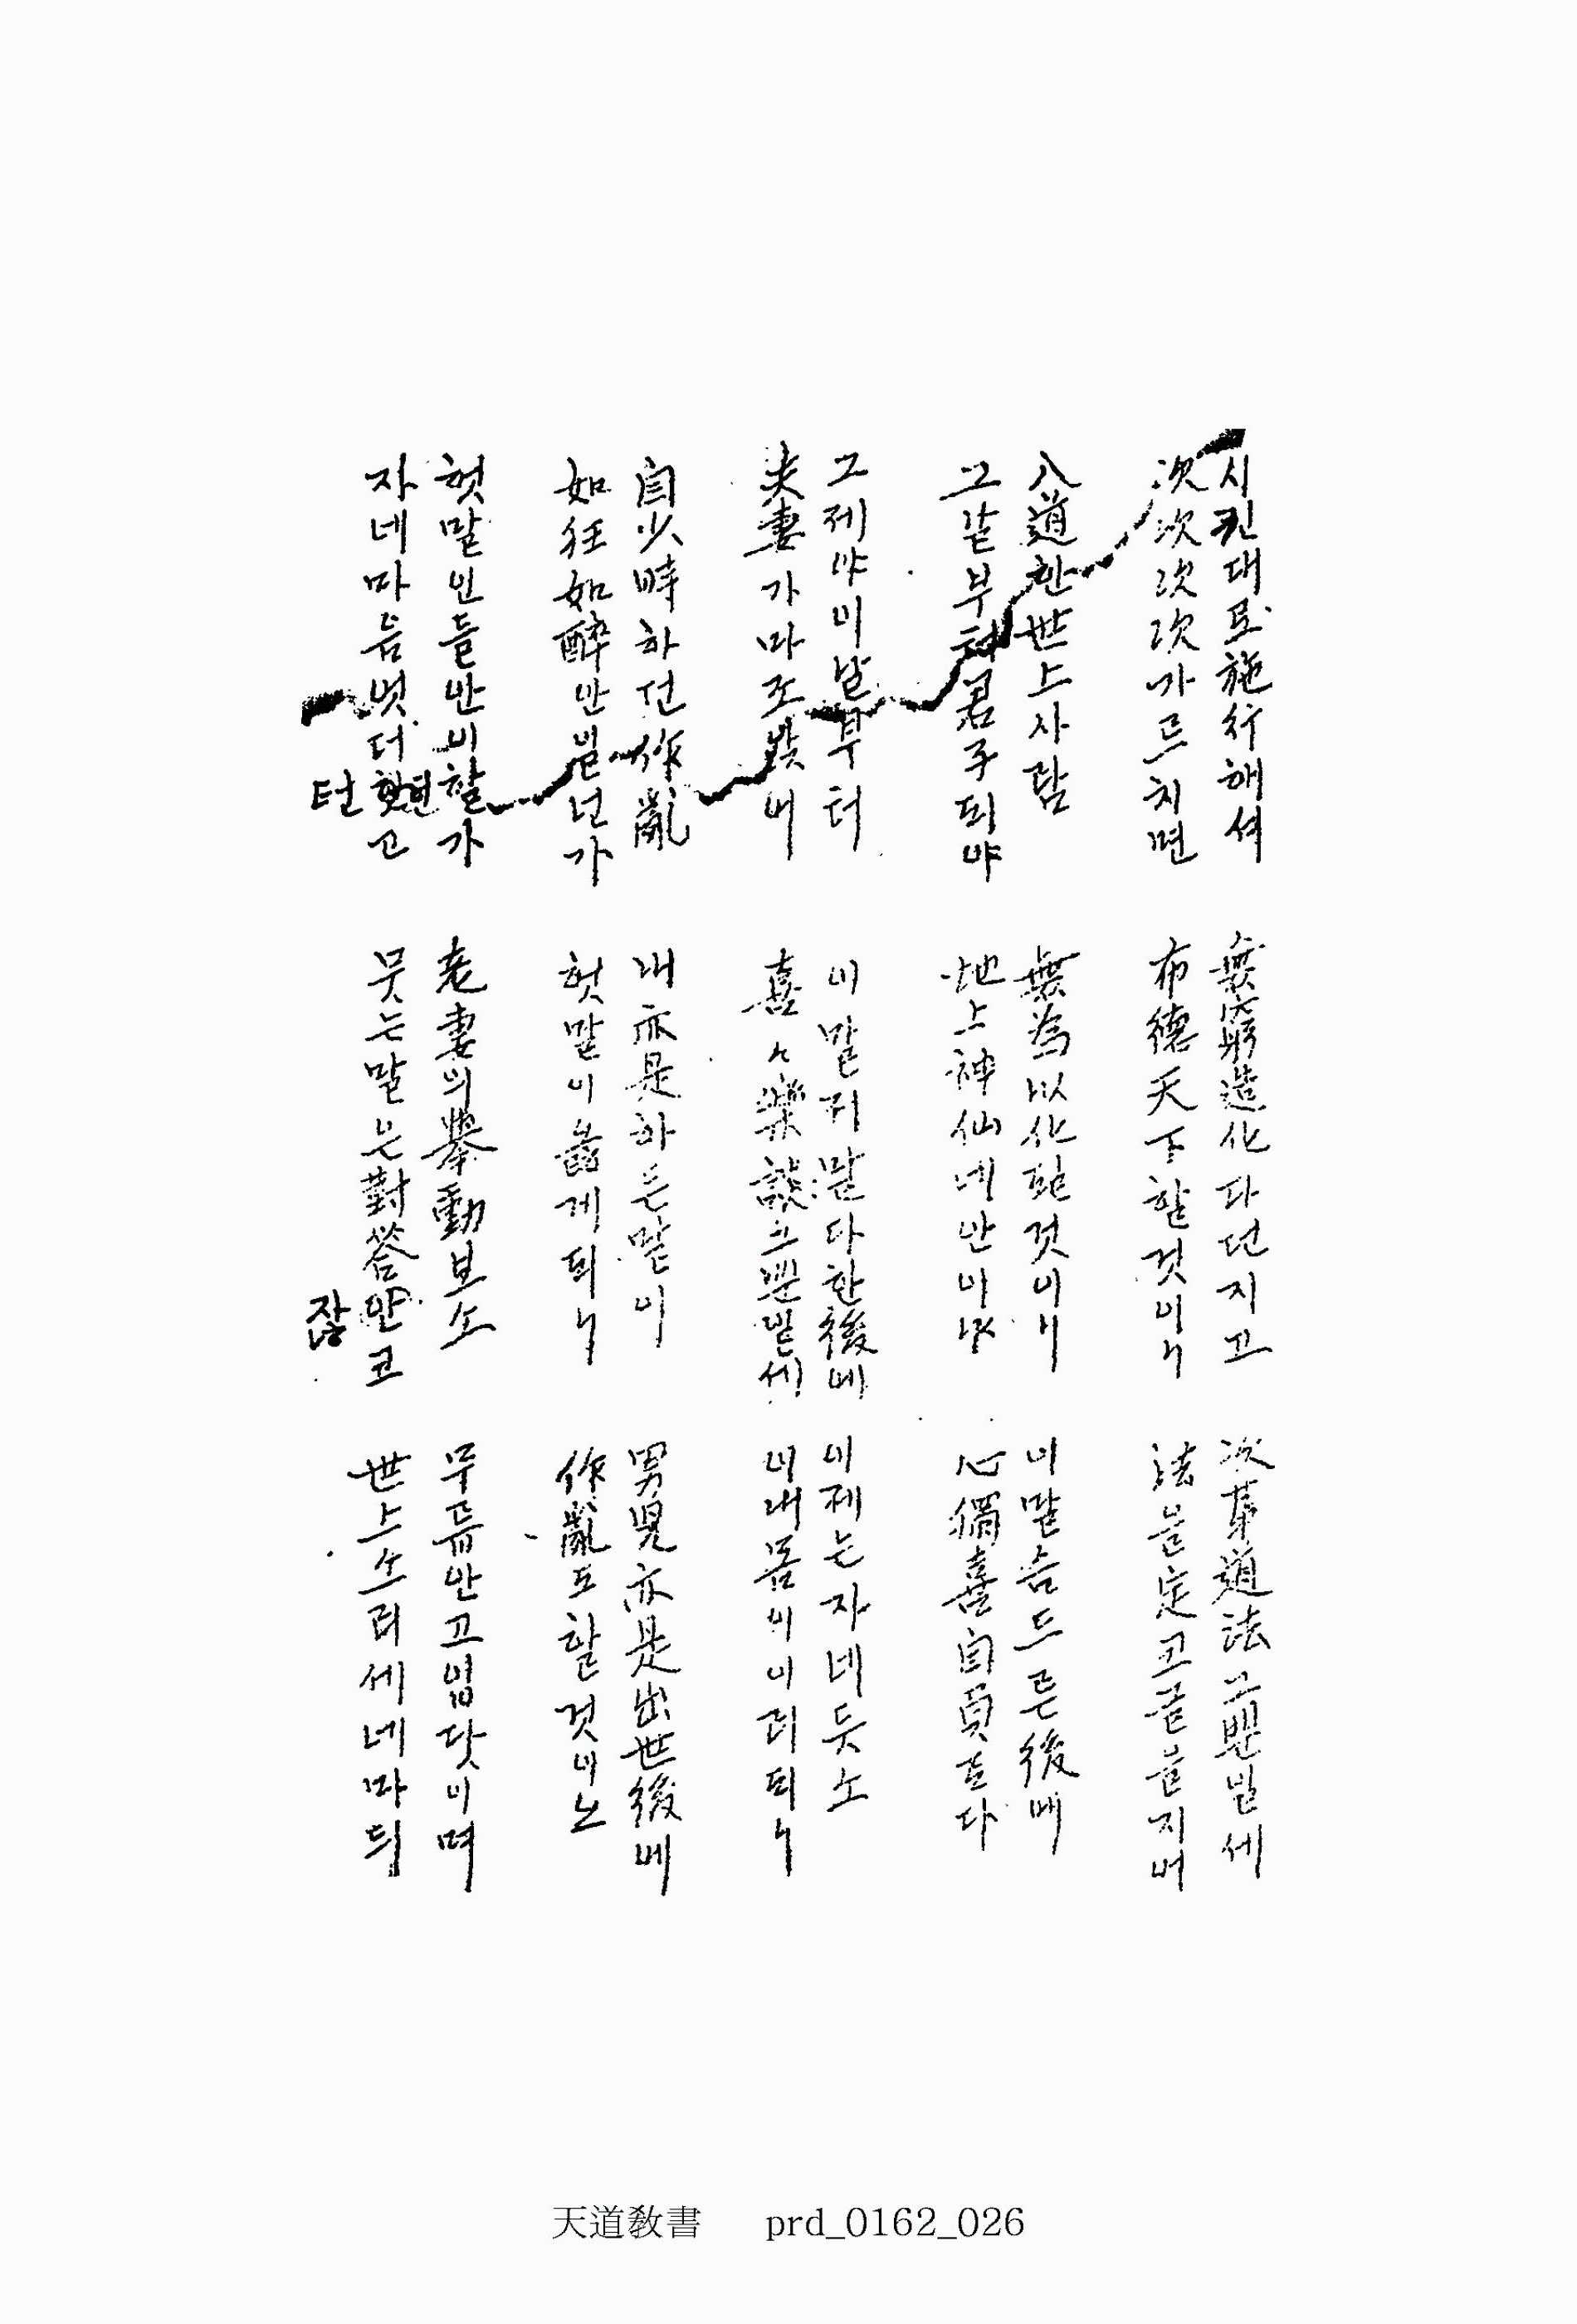 시킨대로施行해셔
次次次次가르치면
無窮造化다던지고
布德天下할것이니
次第道法그뿐일세
法을定코글을지어
八道한世上사람
그날부터君子되야
無爲以化될것이니
地上神仙네안이냐
이말슴드른後에
心獨喜自負로다
그제야이날부터
夫妻가마조안저
이말저말다한後에
喜々樂談그뿐일세
이제는자네듯소
이내몸이이리되니
自少時하던作亂
如狂如醉안일넌가
내亦是하든말이
헛말이올게되니
男兒亦是出世後에
作亂도할것이노
헛말인들안이할가
자네마음엇더한고
老妻의擧動보소
뭇는말은對答안코
무릅안고입닷이며
世上소리세네마듸
턴
잖
天道敎書 prd_0162_026